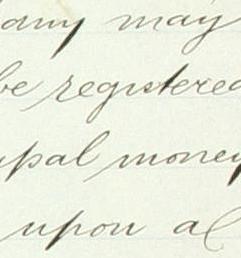 any may
be registered
upal money
upon al